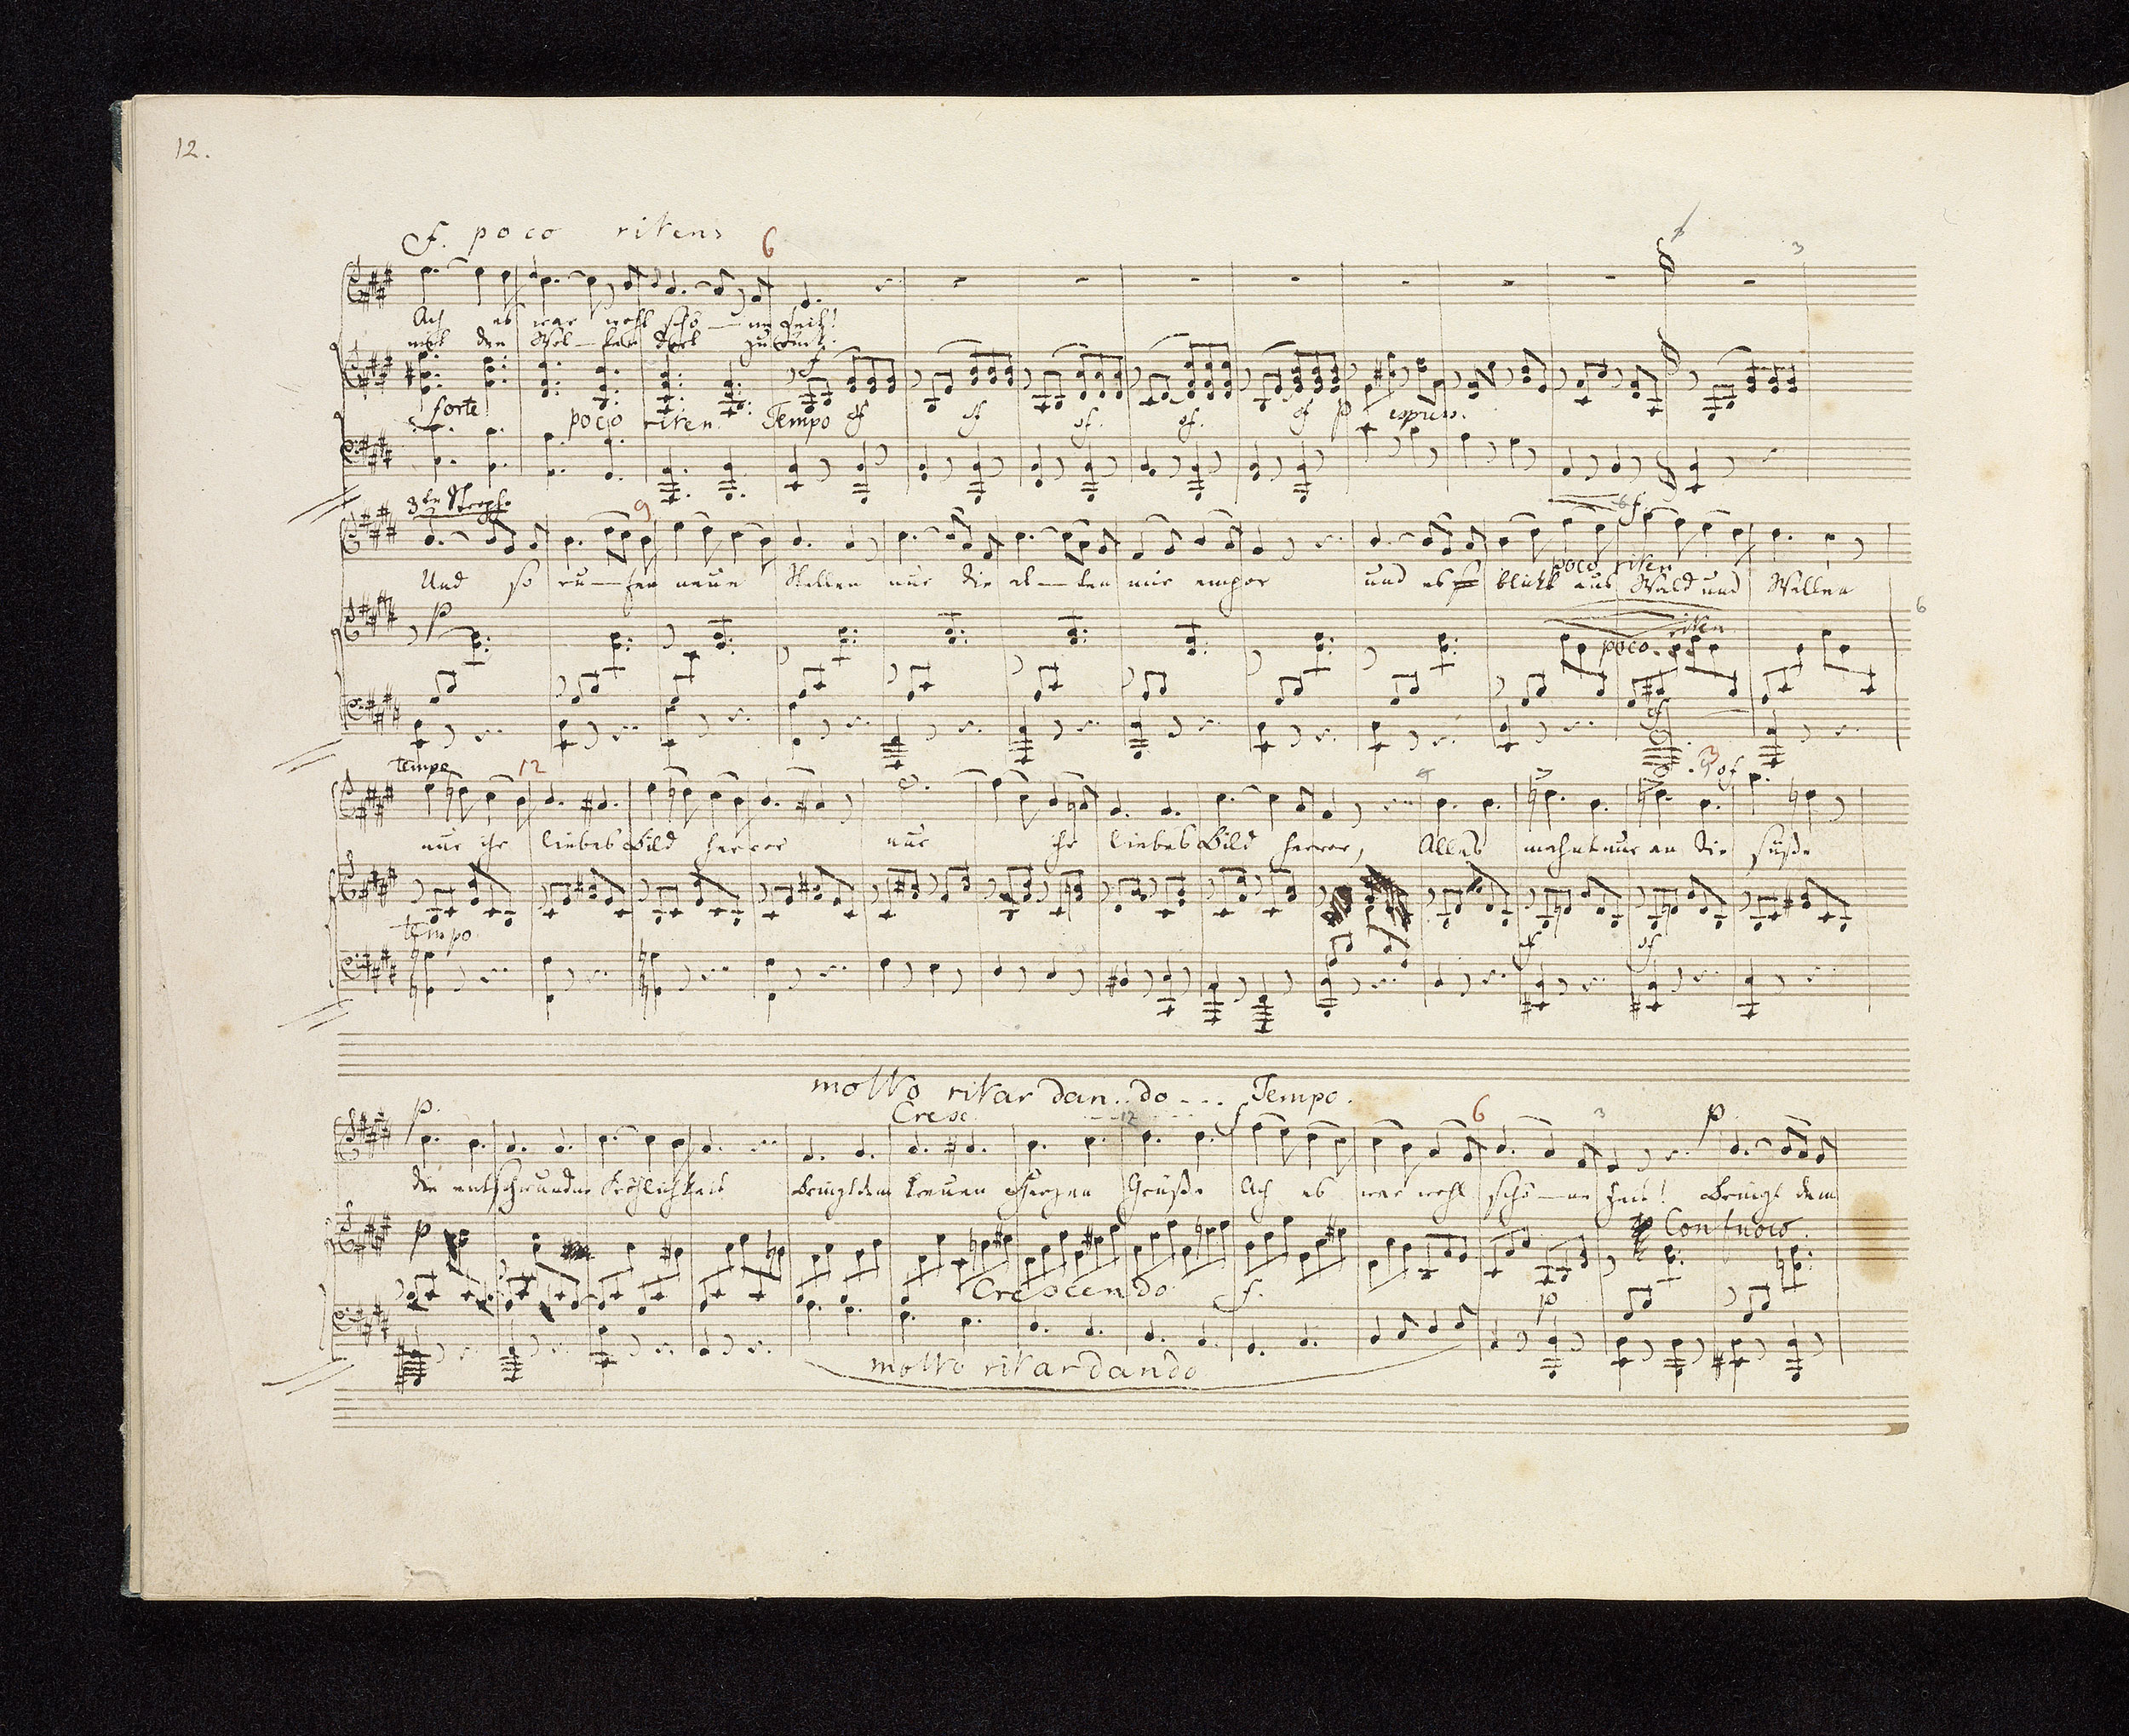 12.
f. poco ritens 6
3
Ach es war wohl schö — ne Zeit!
mit den Wel — len dort zurück.
f
forte poco riten. Tempo sf sf sf. sf. sf p espress.
3te Strophe 9 sf.
poco riten
Und so ru — fen neue Stellen nur die al — ten mir empor und es blickt aus Wald und Wellen
p 6
poco riten
sf
tempo 12 3 sf
nur ihr liebes Bild hervor nur ihr liebes Bild hervor, Alles mahnt nur an die süße
tempo
sf sf
molto ritar dan..do - - - Tempo.
p. Cresc. 12 f 6 3 p
die entschwundne Fröhlichkeit Bringt dem treuen Herzen Grüße Ach es war wohl schö — ne Zeit! Bringt dem
p Con fuoco
Crescendo f. p
molto ritardando